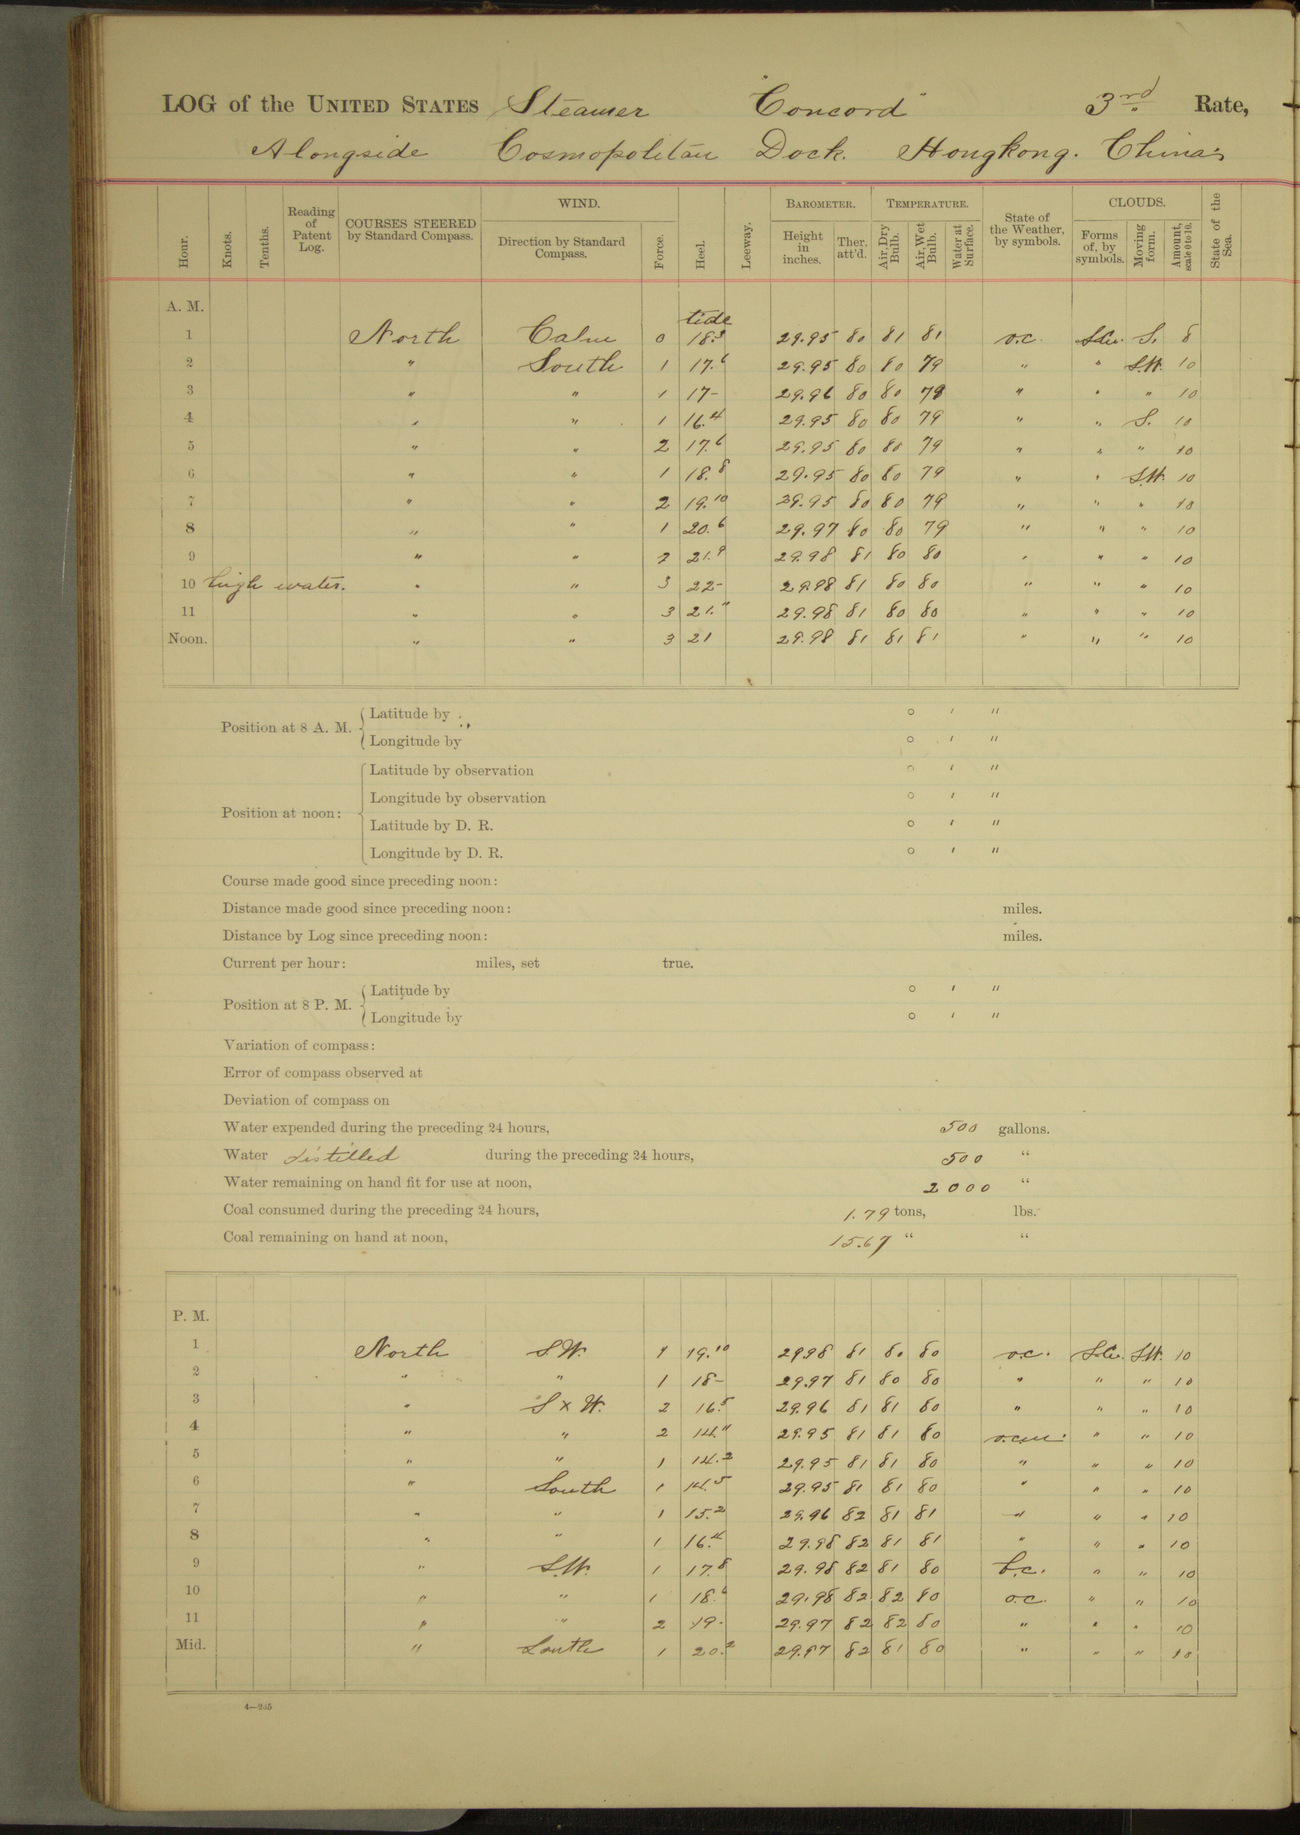 LOG of the UNITED STATES Steamer "Concord" 3rd Rate,
Alongside Cosmopolitan Dock. Hongkong. China.
Hour. Knots. Tenths. Reading of Patent Log. COURSES STEERED by Standard Compass. WIND. Direction by Standard Compass. Force. Heel. Leeway. BAROMETER. Height in inches. Ther. att'd. TEMPERATURE. Air, Dry Bulb. Air, Wet Bulb. Water at Surface. State of the Weather, by symbols. CLOUDS. Forms of, by symbols. Moving form. Amount, scale 0 to 10. State of the Sea.
A. M. tide
1 North Calm 0 18.3 29.95 80 81 81 o.c. S.Cu. S. 8
2 " South 1 17.6 29.95 80 80 79 " " S.W. 10
3 " " 1 17- 29.96 80 80 79 " " " 10
4 " " 1 16.4 29.95 80 80 79 " " S. 10
5 " " 2 17.6 29.95 80 80 79 " " " 10
6 " " 1 18.8 29.95 80 80 79 " " S.W. 10
7 " " 2 19.10 29.95 80 80 79 " " " 10
8 " " 1 20.6 29.97 80 80 79 " " " 10
9 " " 2 21.9 29.98 81 80 80 " " " 10
10 high water. " " 3 22- 29.98 81 80 80 " " " 10
11 " " 3 21." 29.98 81 80 80 " " " 10
Noon. " " 3 21 29.98 81 81 81 " " " 10
Position at 8 A. M. Latitude by ° ' "
Longitude by ° ' "
Position at noon: Latitude by observation ° ' "
Longitude by observation ° ' "
Latitude by D. R. ° ' "
Longitude by D. R. ° ' "
Course made good since preceding noon:
Distance made good since preceding noon: miles.
Distance by Log since preceding noon: miles.
Current per hour: miles, set true.
Position at 8 P. M. Latitude by ° ' "
Longitude by ° ' "
Variation of compass:
Error of compass observed at
Deviation of compass on
Water expended during the preceding 24 hours, 500 gallons.
Water distilled during the preceding 24 hours, 500 "
Water remaining on hand fit for use at noon, 2000 "
Coal consumed during the preceding 24 hours, 1.79 tons, lbs.
Coal remaining on hand at noon, 15.67 " "
P. M.
1 North S.W. 1 19.10 29.98 81 80 80 o.c. S.Cu. S.W. 10
2 " " 1 18- 29.97 81 80 80 " " " 10
3 " S x W. 2 16.5 29.96 81 81 80 " " " 10
4 " " 2 14." 29.95 81 81 80 o.c.m. " " 10
5 " " 1 14.2 29.95 81 81 80 " " " 10
6 " South 1 14.5 29.95 81 81 80 " " " 10
7 " " 1 15.2 29.96 82 81 81 " " " 10
8 " " 1 16.4 29.98 82 81 81 " " " 10
9 " S.W. 1 17.8 29.98 82 81 80 b.c. " " 10
10 " " 1 18.6 29.98 82 82 80 o.c. " " 10
11 " " 2 19. 29.97 82 82 80 " " " 10
Mid. " South 1 20.2 29.97 82 81 80 " " " 10
4—205